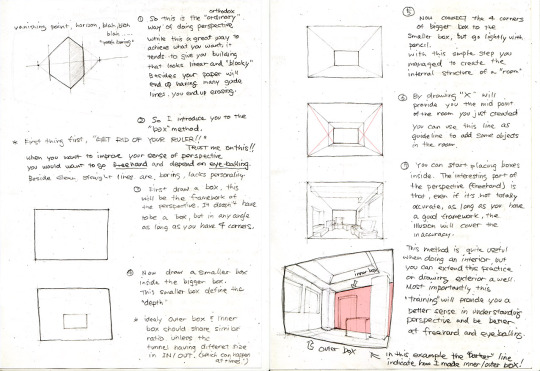 vanishing point, horizon, blah, blah
blah....
"yeah boring"
orthodox
① So this is the "ordinary"
way of doing perspective
while this a great way to
achieve what you want, it
tends to give you building
that looks linear and "blocky"
Besides your paper will
end up having many guide
lines, you end up erasing.
② So I introduce you to the
"box" method.
* First thing first, "GET RID OF YOUR RULER!!"
TRUST ME ON this!!
when you want to improve your sense of perspective
you would want to go freehand and depend on eye-balling.
Beside clean, straight lines are, boring, lacks personality.
③ First draw a box, this
will be the framework of
the perspective. It doesn't have
to be a box, but in any angle
as long as you have 4 corners.
④ Now draw a smaller box
inside the bigger box.
This smaller box define the
"depth"
* idealy outer box & inner
box should share similar
ratio unless the
tunnel having different size
in IN/OUT. (which can happen
at times.)
⑤ Now connect the 4 corners
of bigger box to the
smaller box, but go lightly with
pencil.
with this simple step you
managed to create the
internal structure of a "room"
⑥ By drawing "X" will
provide you the mid point
of the room you just created
you can use this line as
guideline to add some objects
in the room.
⑦ You can start placing boxes
inside. The interesting part of
the perspective (freehand) is
that, even if it's not totally
accurate, as long as you have
a good framework, the
illusion will cover the
inaccuracy.
This method is quite useful
when doing an interior, but
you can extend this practice
on drawing exterior as well.
Most importantly this
"training" will provide you a
better sense in understanding
perspective and be better
at freehand and eye-balling.
inner box
outer box
in this example the "darker" line
indicate how I made inner/outer box!